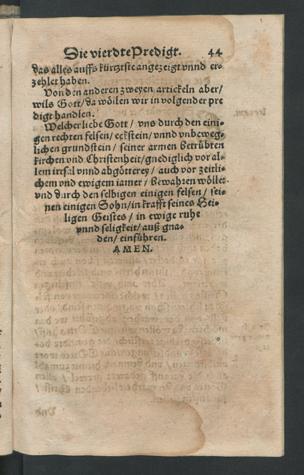 Die vierdte Predigt. 44
das alles auffs kürtzste angezeigt vnnd er-
zehlet haben.
Von den anderen zweyen artickeln aber/
wils Gott/ da wöllen wir in volgender pre
digt handlen.
Welcher liebe Gott / vns durch den eini-
gen rechten felsen/ eckstein/ vnnd vnbeweg-
lichen grundstein / seiner armen betrübten
kirchen vnd Christenheit/ gnediglich vor al-
lem irrsal vnnd abgötterey / auch vor zeitli-
chem vnd ewigem iamer/ bewahren wölle:
vnd durch den selbigen einigen felsen / sei-
nen einigen Sohn/ in krafft seines Hei-
ligen Geistes / in ewige ruhe
vnnd seligkeit/ auß gna-
den/ einführen.
AMEN.